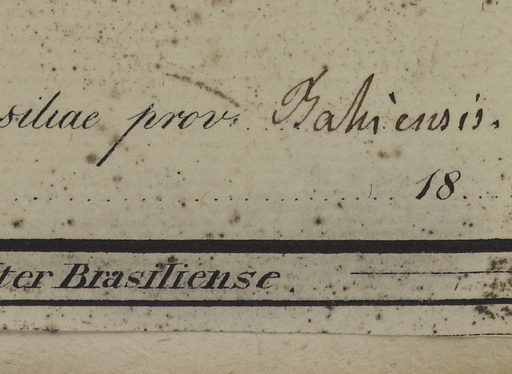 siliae prov. Bahiensis.
18
ter Brasiliense